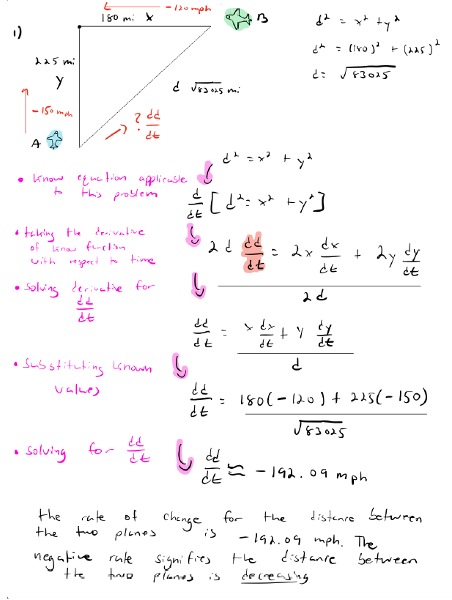 1)
-120 mph
180 mi x
B
225 mi
y
-150 mph
A
d √83025 mi
? dd/dt
d² = x² + y²
d² = (180)² + (225)²
d = √83025
d² = x² + y²
• know equation applicable
to this problem
d/dt [d² = x² + y²]
• taking the derivative
of know function
with respect to time
2d dd/dt = 2x dx/dt + 2y dy/dt
2d
• solving derivative for
dd/dt
dd/dt = x dx/dt + y dy/dt
d
• substituting known
values
dd/dt = 180(-120) + 225(-150)
√83025
• solving for dd/dt
dd/dt ≈ -192.09 mph
the rate of change for the distance between
the two planes is -192.09 mph. The
negative rate signifies the distance between
the two planes is decreasing